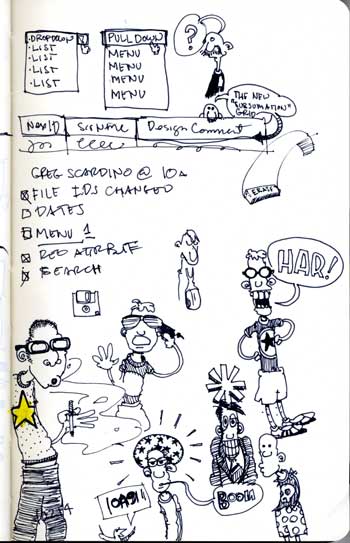 DROPDOWN
·LIST
·LIST
·LIST
·LIST
PULL DOWN
MENU
MENU
MENU
MENU
?
THE NEW
GRID
Nav ID
Design Comment
ERASE
GREG SCARDINO @ 10A
FILE IDS CHANGED
DATES
MENU 1
RED ATTRIBUTE
SEARCH
HAR!
BOOM